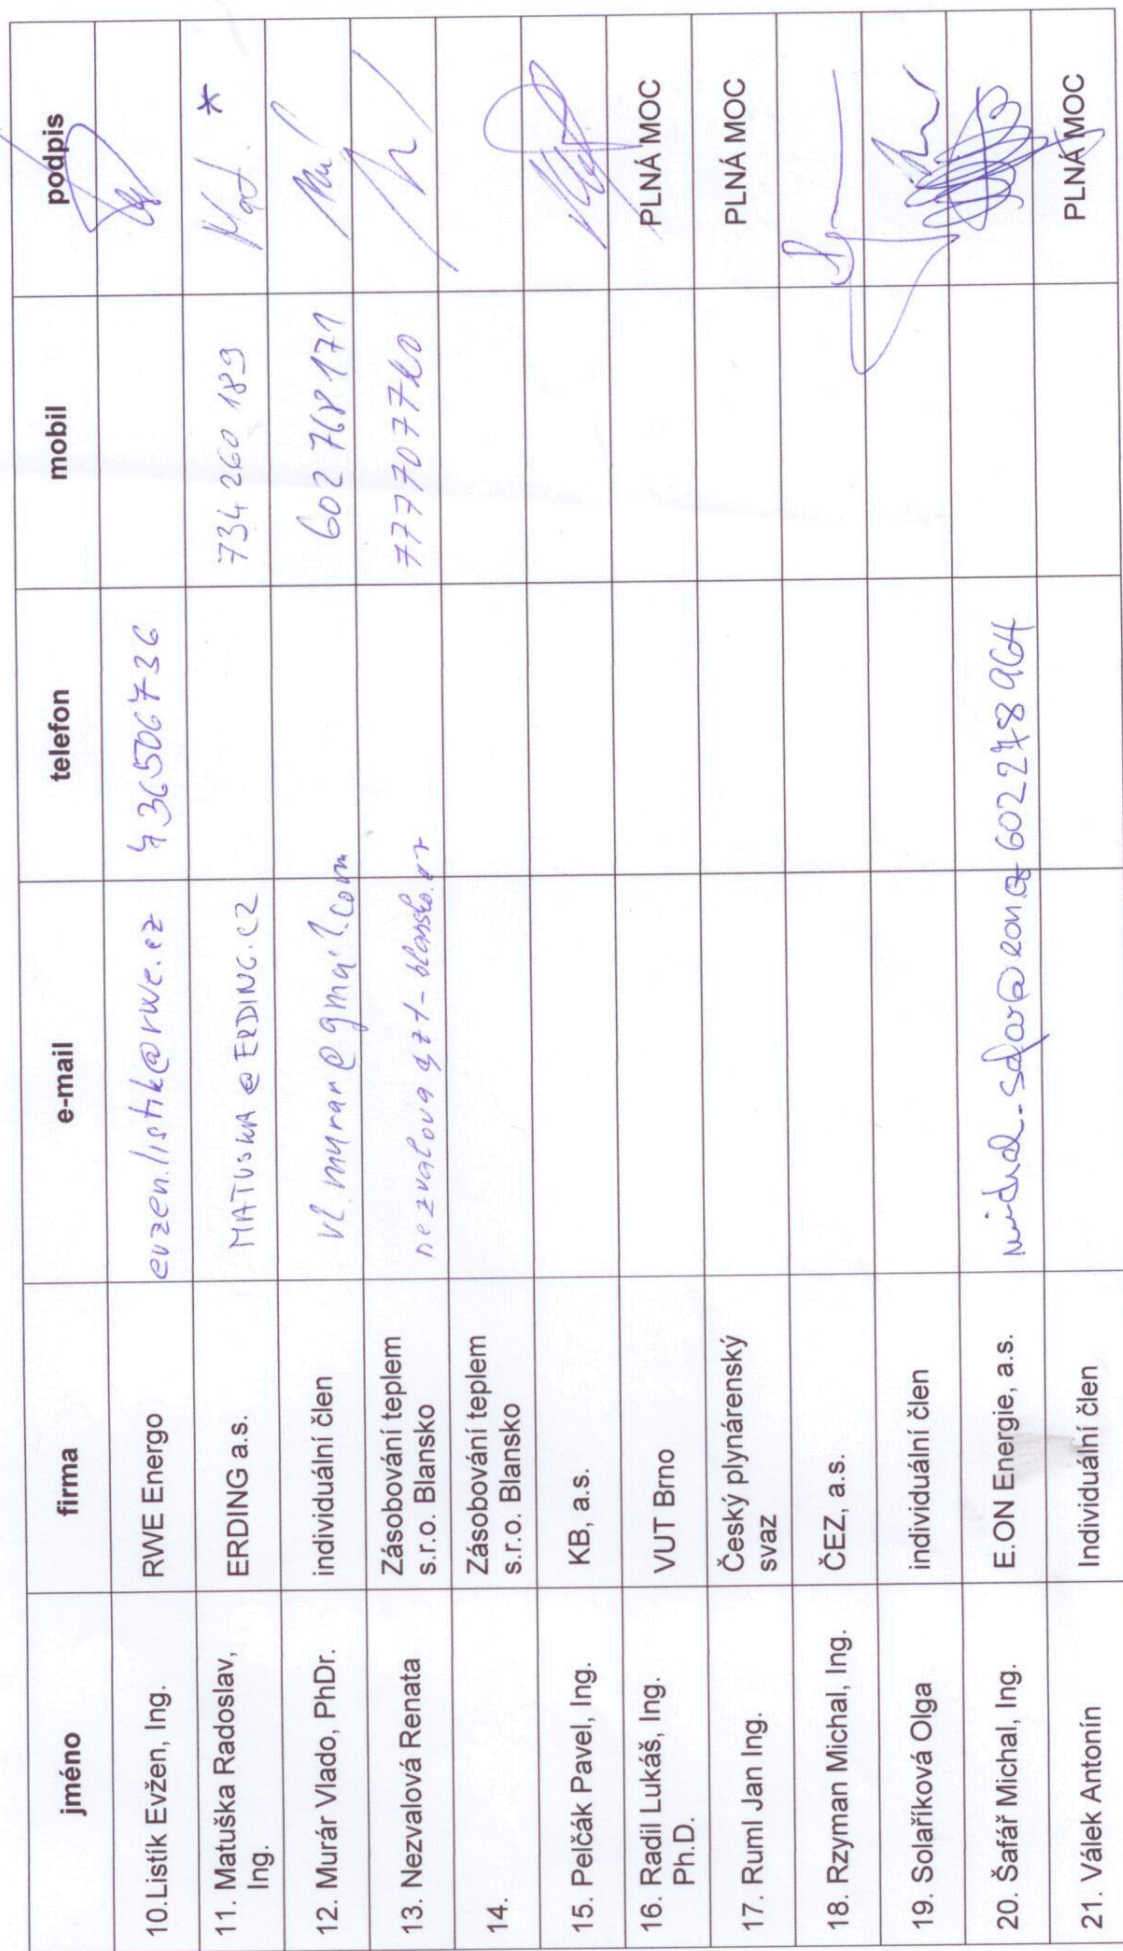 jméno firma e-mail telefon mobil podpis
10.Listík Evžen, Ing. RWE Energo evzen.listik@rwe.cz 736506736
11. Matuška Radoslav, ERDING a.s. MATUSKA@ERDING.CZ 734 260 189 Mat. *
Ing.
12. Murár Vlado, PhDr. individuální člen vl.murar@gmail.com 602 768 171
13. Nezvalová Renata Zásobování teplem
s.r.o. Blansko
14. Zásobování teplem
s.r.o. Blansko
15. Pelčák Pavel, Ing. KB, a.s.
16. Radil Lukáš, Ing. VUT Brno PLNÁ MOC
Ph.D.
17. Ruml Jan Ing. Český plynárenský PLNÁ MOC
svaz
18. Rzyman Michal, Ing. ČEZ, a.s.
19. Solaříková Olga individuální člen
20. Šafář Michal, Ing. E.ON Energie, a.s. 602278964
21. Válek Antonín Individuální člen PLNÁ MOC